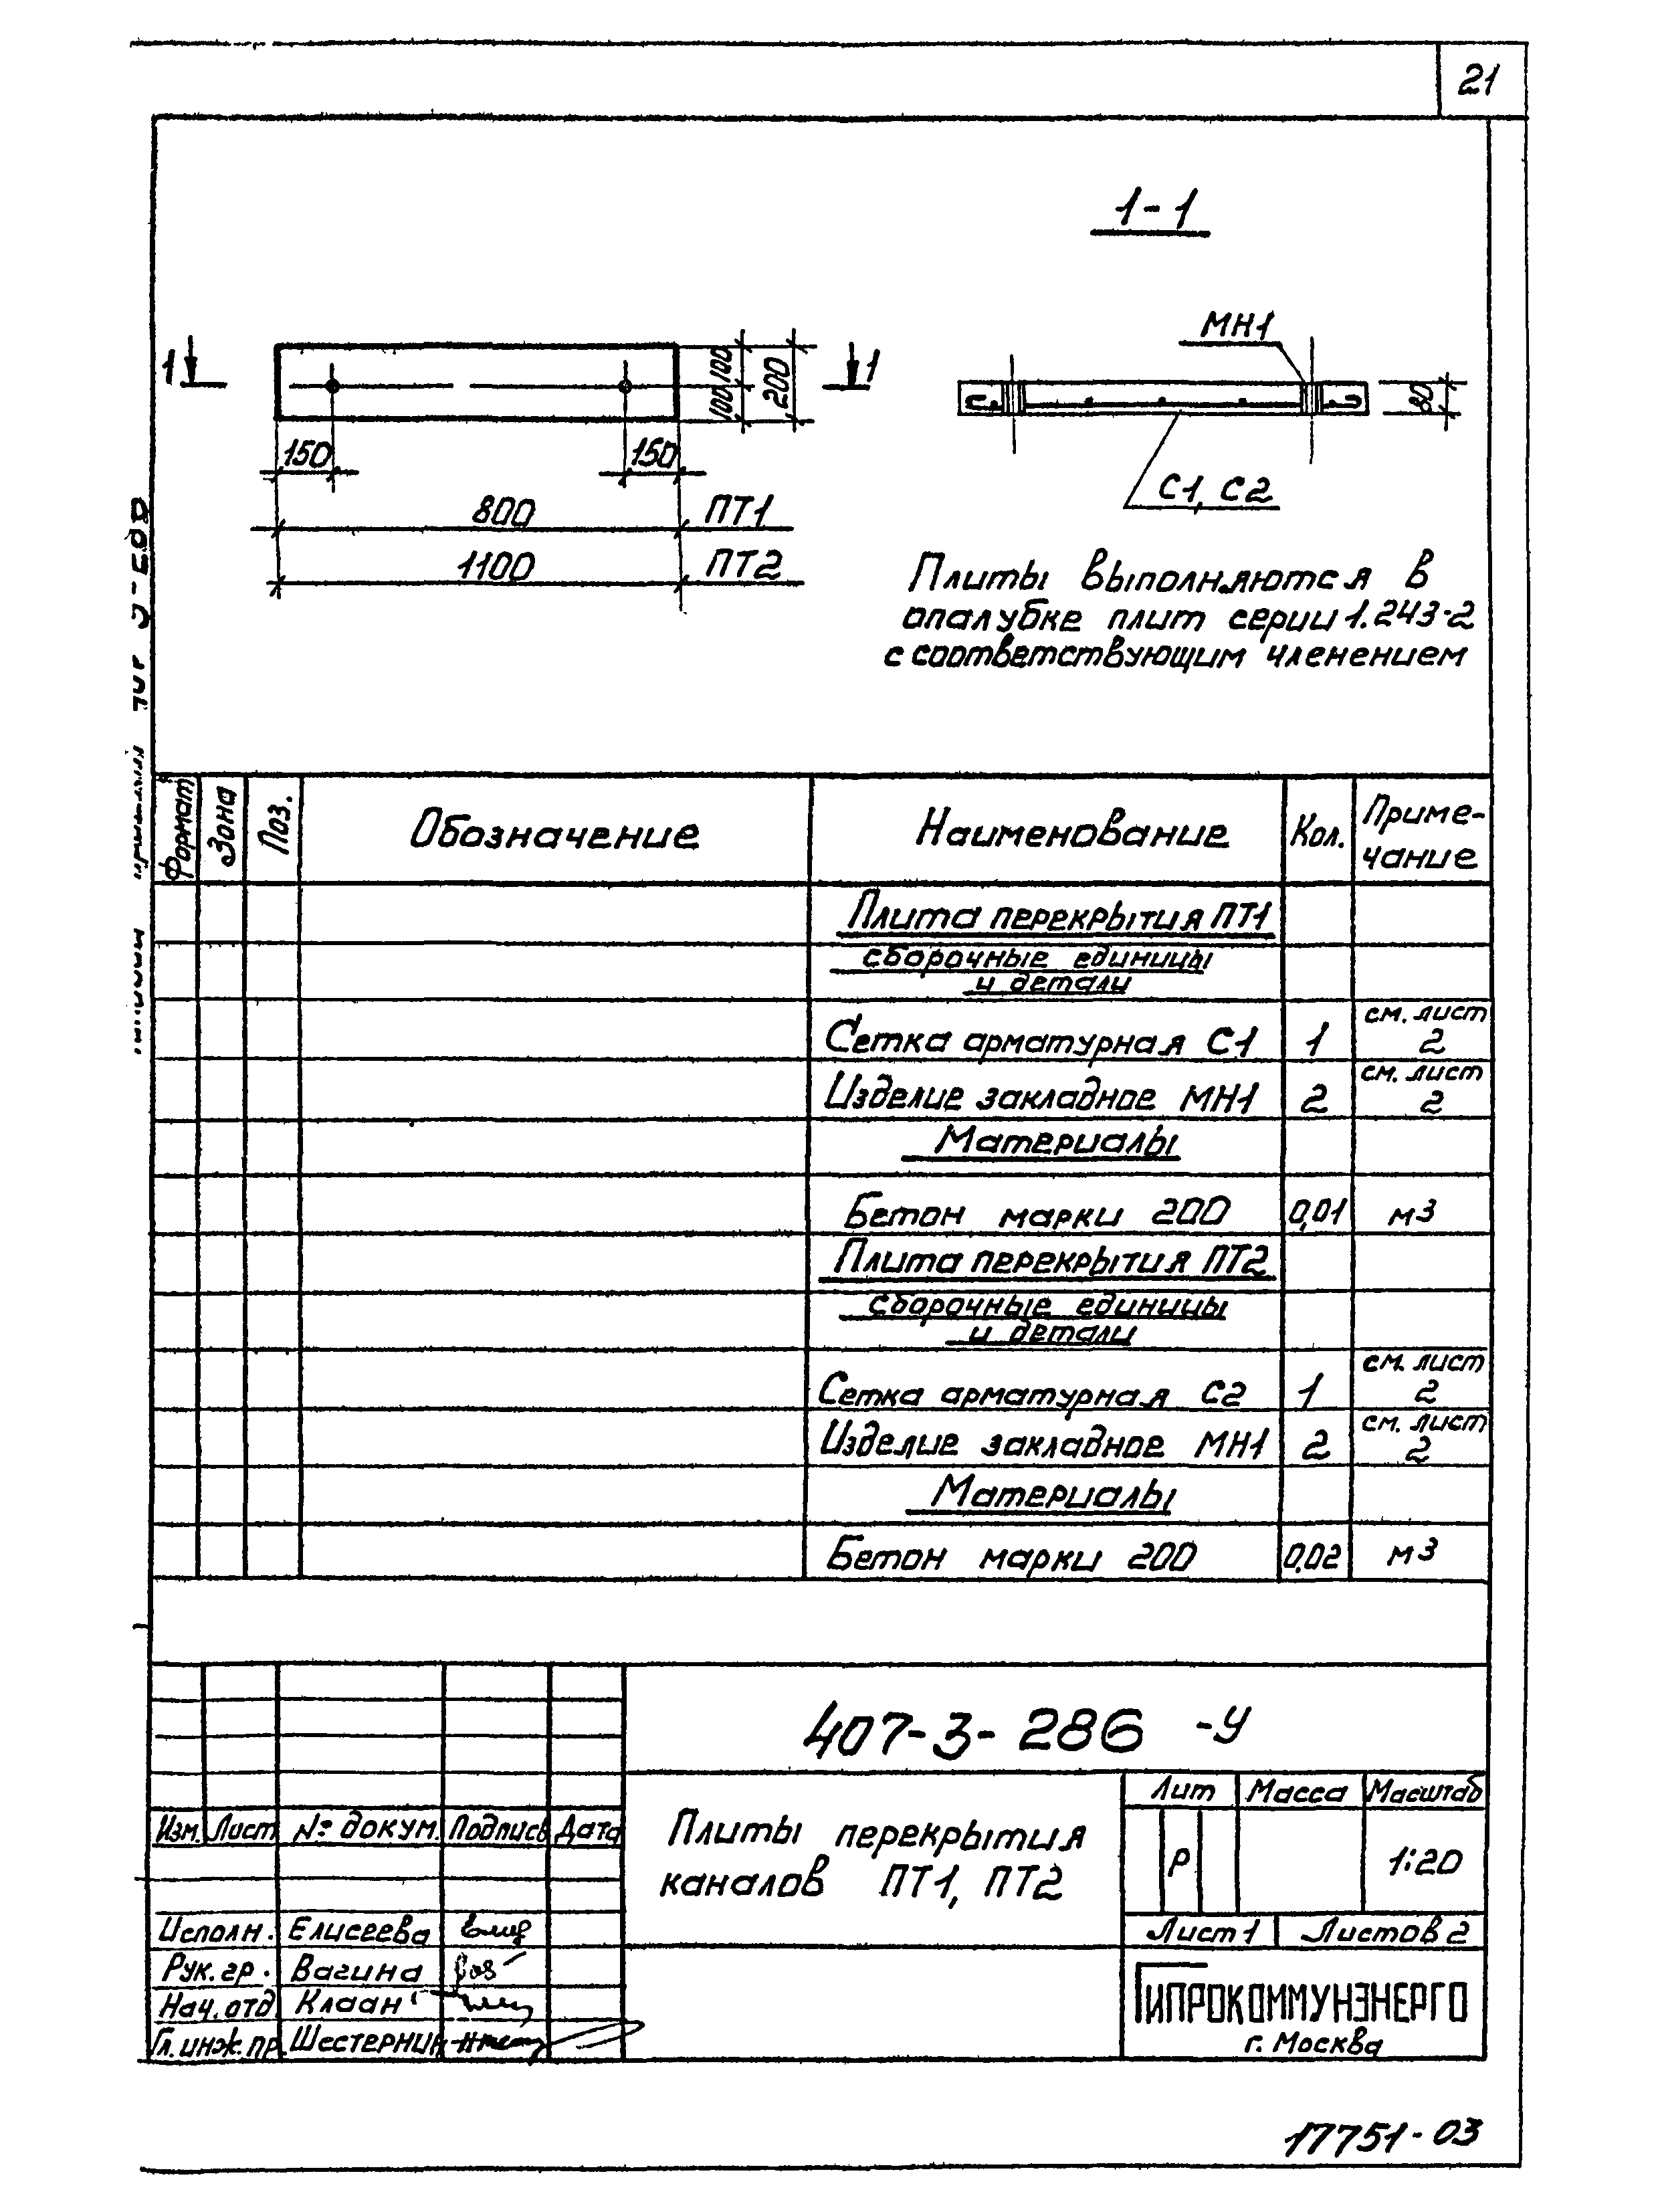 21
1-1
1 1
100 100 200
150 150
800 ПТ1
1100 ПТ2
МН1
80
С1, С2
Плиты выполняются в
опалубке плит серии 1.243-2
с соответствующим членением
Формат Зона Поз. Обозначение Наименование Кол. Приме-
чание
Плита перекрытия ПТ1
сборочные единицы
и детали
Сетка арматурная С1 1 см. лист 2
Изделие закладное МН1 2 см. лист 2
Материалы
Бетон марки 200 0,01 м3
Плита перекрытия ПТ2
сборочные единицы
и детали
Сетка арматурная С2 1 см. лист 2
Изделие закладное МН1 2 см. лист 2
Материалы
Бетон марки 200 0,02 м3
407-3-286 -У
Изм. Лист № докум. Подпись Дата
Плиты перекрытия
каналов ПТ1, ПТ2
Лит Масса Масштаб
Р 1:20
Лист 1 Листов 2
Исполн. Елисеева
Рук. гр. Вагина
Нач. отд Клаан
Гл. инж. пр. Шестернин
Гипрокоммунэнерго
г. Москва
17751-03